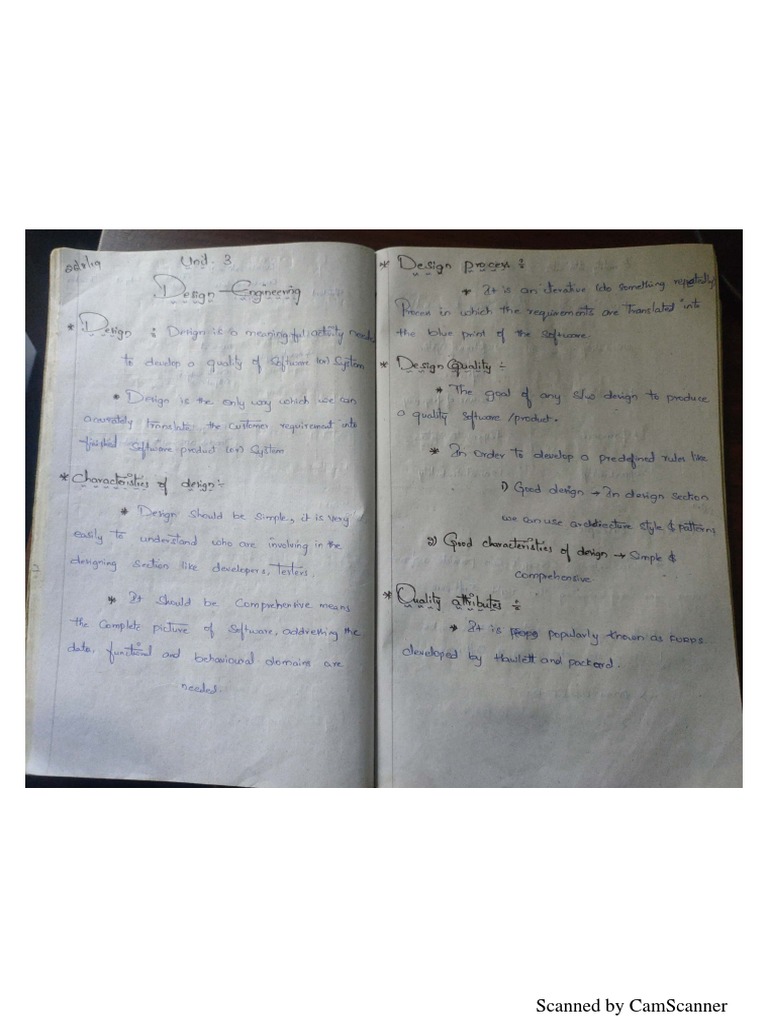 Unit - 3
Design Engineering
* Design : Design is a meaningful activity needs
to develop a quality of Software (or) System
* Design is the only way which we can
accurately translate the customer requirement into
finished Software product (or) System
* Characteristics of design :-
* Design should be simple, it is very
easily to understand who are involving in the
designing section like developers, Testers.
* It should be Comprehensive means
the Complete picture of Software, addressing the
data, functional and behavioural domains are
needed.
* Design process :
* It is an iterative (do something repeatedly)
Process in which the requirements are Translated into
the blue print of the Software.
* Design Quality :-
* The goal of any s/w design to produce
a quality software /product.
* In order to develop a predefined rules like
1) Good design → In design section
we can use architecture style & patterns
2) Good characteristics of design → Simple &
Comprehensive
* Quality attributes :
* It is popularly known as FURPS
developed by Hawlett and packard.
Scanned by CamScanner